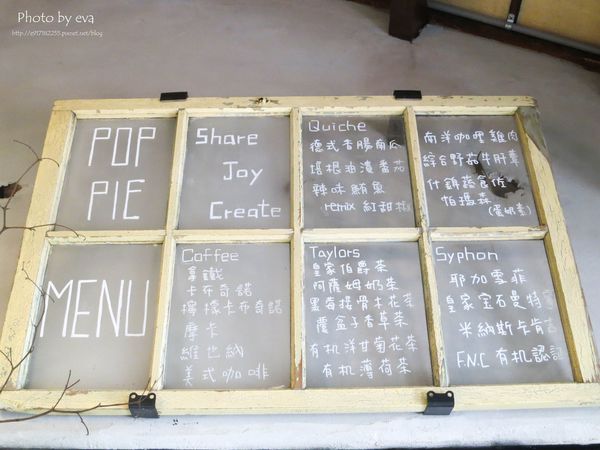 Photo by eva
http://e917182255.pixnet.net/blog
POP
PIE
Share
Joy
Create
Quiche
德式香腸南瓜
培根油漬番茄
辣味鮪魚
remix 紅甜椒
南洋咖哩雞肉
綜合野菇牛肝蕈
什錦蔬食佐
帕瑪森
(蛋奶素)
MENU
Coffee
拿鐵
卡布奇諾
檸檬卡布奇諾
摩卡
維也納
美式咖啡
Taylors
皇家伯爵茶
阿薩姆奶茶
黑莓接骨木花茶
覆盆子香草茶
有机洋甘菊花茶
有机薄荷茶
Syphon
耶加雪菲
皇家金石曼特寧
米納斯卡肯
F.N.C 有机認証